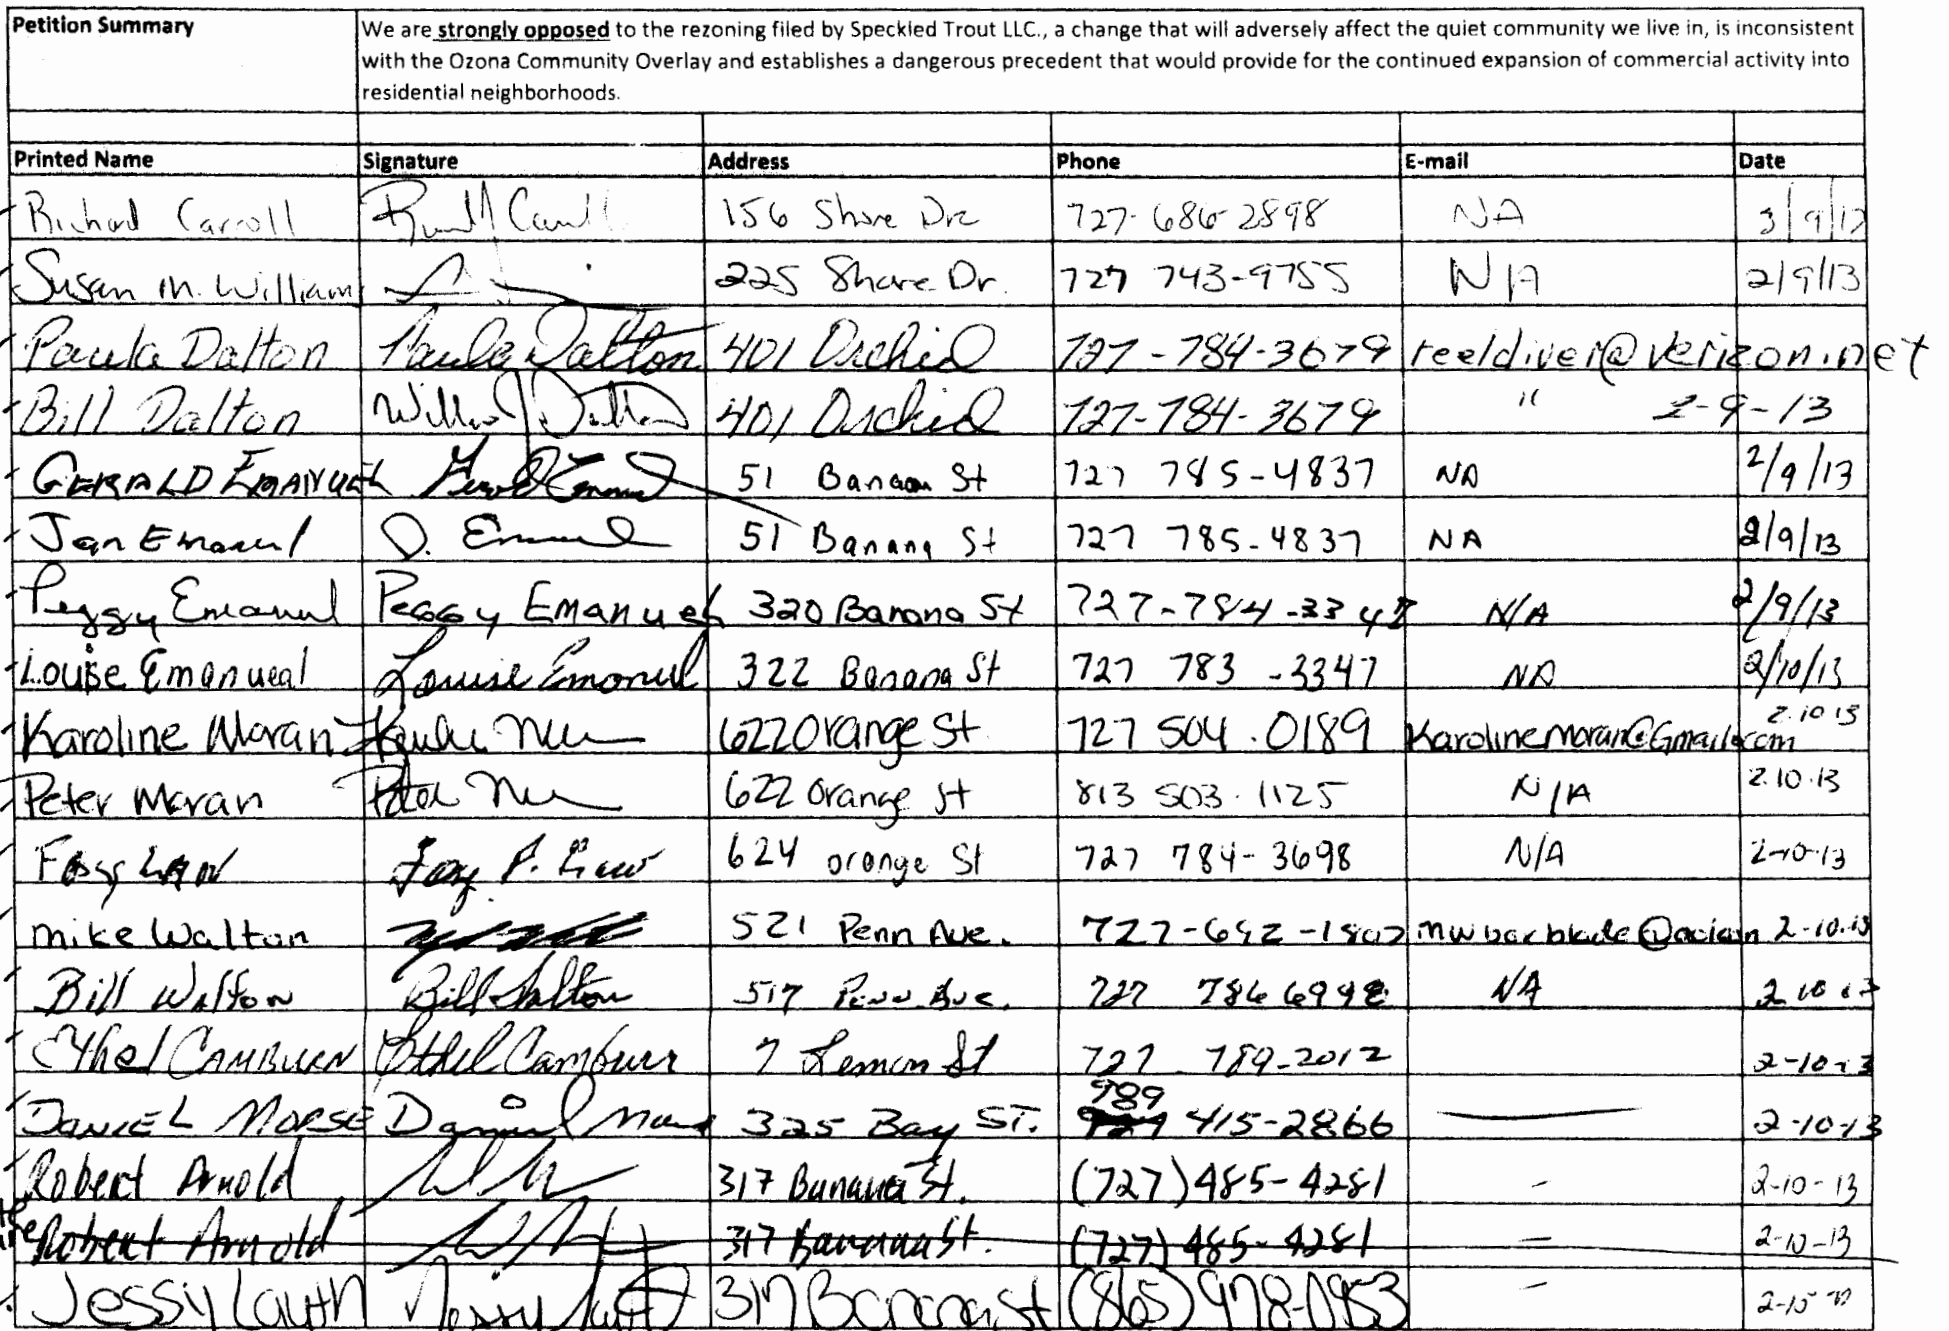 Petition Summary We are strongly opposed to the rezoning filed by Speckled Trout LLC., a change that will adversely affect the quiet community we live in, is inconsistent
with the Ozona Community Overlay and establishes a dangerous precedent that would provide for the continued expansion of commercial activity into
residential neighborhoods.
Printed Name Signature Address Phone E-mail Date
Richard Carroll 156 Shore Dr 727-686-2898 NA 3/9/13
Susan M. William 225 Shore Dr. 727 743-9755 N/A 2/9/13
Paula Dalton Paula Dalton 401 Orchid 727-784-3679 reeldiver@verizon.net
Bill Dalton William J Dalton 401 Orchid 727-784-3679 " 2-9-13
GERALD EMANUEL Gerald Emanuel 51 Banana St 727 785-4837 NA 2/9/13
Jan Emanuel J. Emanuel 51 Banana St 727 785-4837 NA 2/9/13
Peggy Emanuel Peggy Emanuel 320 Banana St 727-784-3347 N/A 2/9/13
Louise Emanueal Louise Emanuel 322 Banana St 727 783-3347 NA 2/10/13
Karoline Moran 622 Orange St 727 504.0189 KarolineMoran@Gmail.com 2.10 13
Peter Moran 622 Orange St 813 503.1125 N/A 2.10.13
Law 624 orange St 727 784-3698 N/A 2-10-13
Mike Walton 521 Penn Ave. 727-692-1807 2-10-13
Bill Walton Bill Walton 517 Penn Ave. 727 786 6998 NA 2 10 13
Ethel CAMBURN Ethel Camburn 7 Lemon St 727 789-2012 2-10-13
DANIEL MORSE Daniel Morse 325 Bay ST. 989 415-2866 2-10-13
Robert Arnold 317 Banana St. (727) 485-4281 - 2-10-13
Robert Arnold 317 Banana St. (727) 485-4281 - 2-10-13
Jessy Lauth Jessy Lauth 317 Banana St (865) 978-0953 -